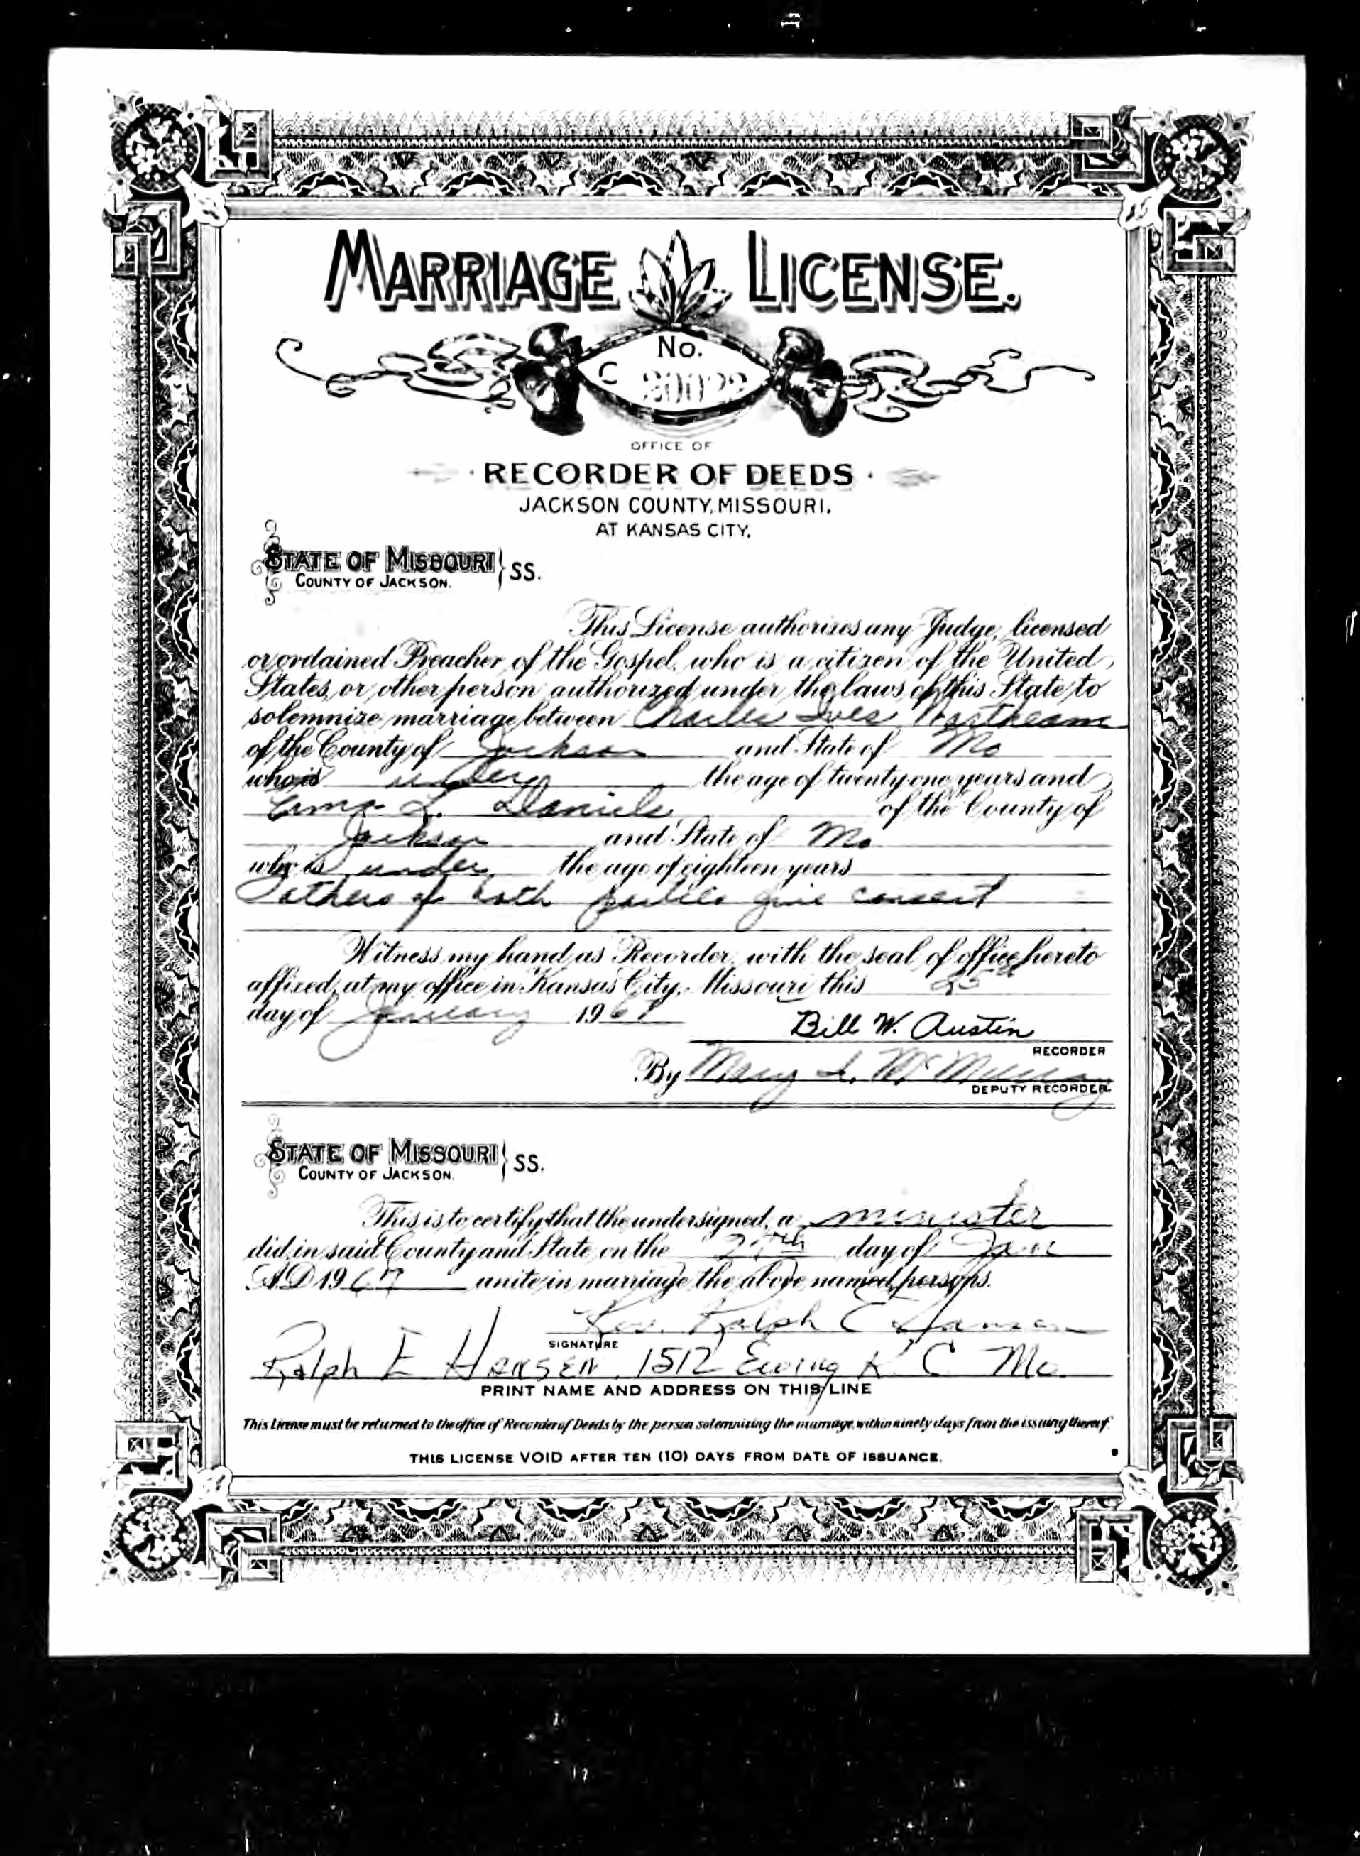 MARRIAGE LICENSE.
No.
C 20022
OFFICE OF
RECORDER OF DEEDS
JACKSON COUNTY, MISSOURI,
AT KANSAS CITY,
STATE OF MISSOURI
COUNTY OF JACKSON. } SS.
This License authorizes any Judge, licensed
or ordained Preacher of the Gospel, who is a citizen of the United
States, or other person authorized under the laws of this State to
solemnize marriage between Charles Ives
of the County of Jackson and State of Mo
who is under the age of twenty one years and
Erma L. Daniels of the County of
Jackson and State of Mo
who is under the age of eighteen years
Fathers of both parties give consent
Witness my hand as Recorder, with the seal of office hereto
affixed, at my office in Kansas City, Missouri this 25th
day of January 1967
Bill W. Austin
RECORDER
By Mary L. McMurray
DEPUTY RECORDER.
STATE OF MISSOURI
COUNTY OF JACKSON. } SS.
This is to certify that the undersigned, a minister
did, in said County and State, on the day of Jan
A.D. 1967 unite in marriage the above named persons.
Rev. Ralph E Hansen
SIGNATURE
Ralph E HANSEN 1512 Ewing K C Mo.
PRINT NAME AND ADDRESS ON THIS LINE
This License must be returned to the office of Recorder of Deeds by the person solemnizing the marriage, within ninety days from the issuing thereof.
THIS LICENSE VOID AFTER TEN (10) DAYS FROM DATE OF ISSUANCE.